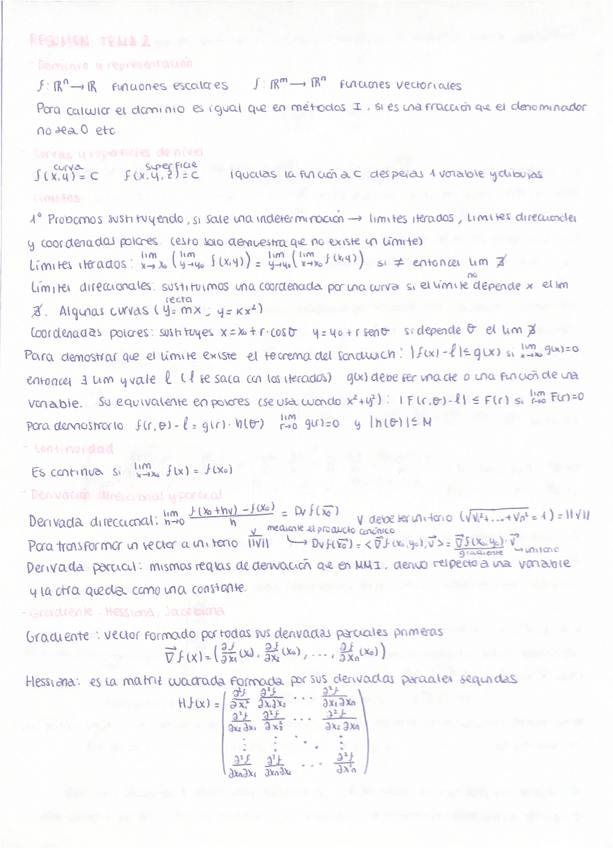 RESUMEN TEMA 2
- Dominio y representación
f: ℝⁿ → ℝ funciones escalares f: ℝᵐ → ℝⁿ funciones vectoriales
Para calcular el dominio es igual que en métodos I. si es una fracción que el denominador
no sea 0 etc
- Curvas y superficies de nivel
curva superficie
f(x,y) = C f(x,y,z) = C igualas la función a C despejas 1 variable y dibujas
- Límites
1º Probamos sustituyendo, si sale una indeterminación → límites iterados, límites direccionales
y coordenadas polares. (esto solo demuestra que no existe un límite)
Límites iterados: lim x→x₀ (lim y→y₀ f(x,y)) = lim y→y₀ (lim x→x₀ f(x,y)) si ≠ entonces lim ∄
Límites direccionales: sustituimos una coordenada por una curva si el límite depende x el lim
no
∄. Algunas curvas (y = mx recta; y = kx²)
Coordenadas polares: sustituyes x = x₀ + r·cosθ y = y₀ + r senθ si depende θ el lim ∄
Para demostrar que el límite existe el teorema del sandwich: |f(x) - ℓ| ≤ g(x) si lim x→x₀ g(x) = 0
entonces ∃ lim y vale ℓ (ℓ se saca con los iterados) g(x) debe ser una cte o una función de una
variable. Su equivalente en polares (se usa cuando x²+y²): |F(r,θ) - ℓ| ≤ F(r) si lim r→0 F(r) = 0
Para demostrarlo f(r,θ) - ℓ = g(r)·h(θ) lim r→0 g(r) = 0 y |h(θ)| ≤ M
- Continuidad
Es continua si lim x→x₀ f(x) = f(x₀)
- Derivación direccional y parcial
Derivada direccional: lim h→0 (f(x₀+hv) - f(x₀))/h = Dv f(x₀) v debe ser unitario (√(v₁²+...+vn²) = 1) = ||v||
mediante el producto canónico
Para transformar un vector a unitario v/||v|| ↳ Dv f(x₀) = <∇f(x₀,y₀), v> = ∇f(x₀,y₀)·v
gradiente unitario
Derivada parcial: mismas reglas de derivación que en MMI. derivo respecto a una variable
y la otra queda como una constante.
- Gradiente. Hessiana. Jacobiana
Gradiente: vector formado por todas sus derivadas parciales primeras
∇f(x) = (∂f/∂x₁(x₀), ∂f/∂x₂(x₀), ..., ∂f/∂xn(x₀))
Hessiana: es la matriz cuadrada formada por sus derivadas parciales segundas
Hf(x) = ( ∂²f/∂x₁² ∂²f/∂x₁∂x₂ ... ∂²f/∂x₁∂xn
∂²f/∂x₂∂x₁ ∂²f/∂x₂² ... ∂²f/∂x₂∂xn
⋮ ⋮ ⋱ ⋮
∂²f/∂xn∂x₁ ∂²f/∂xn∂x₂ ... ∂²f/∂x²n )